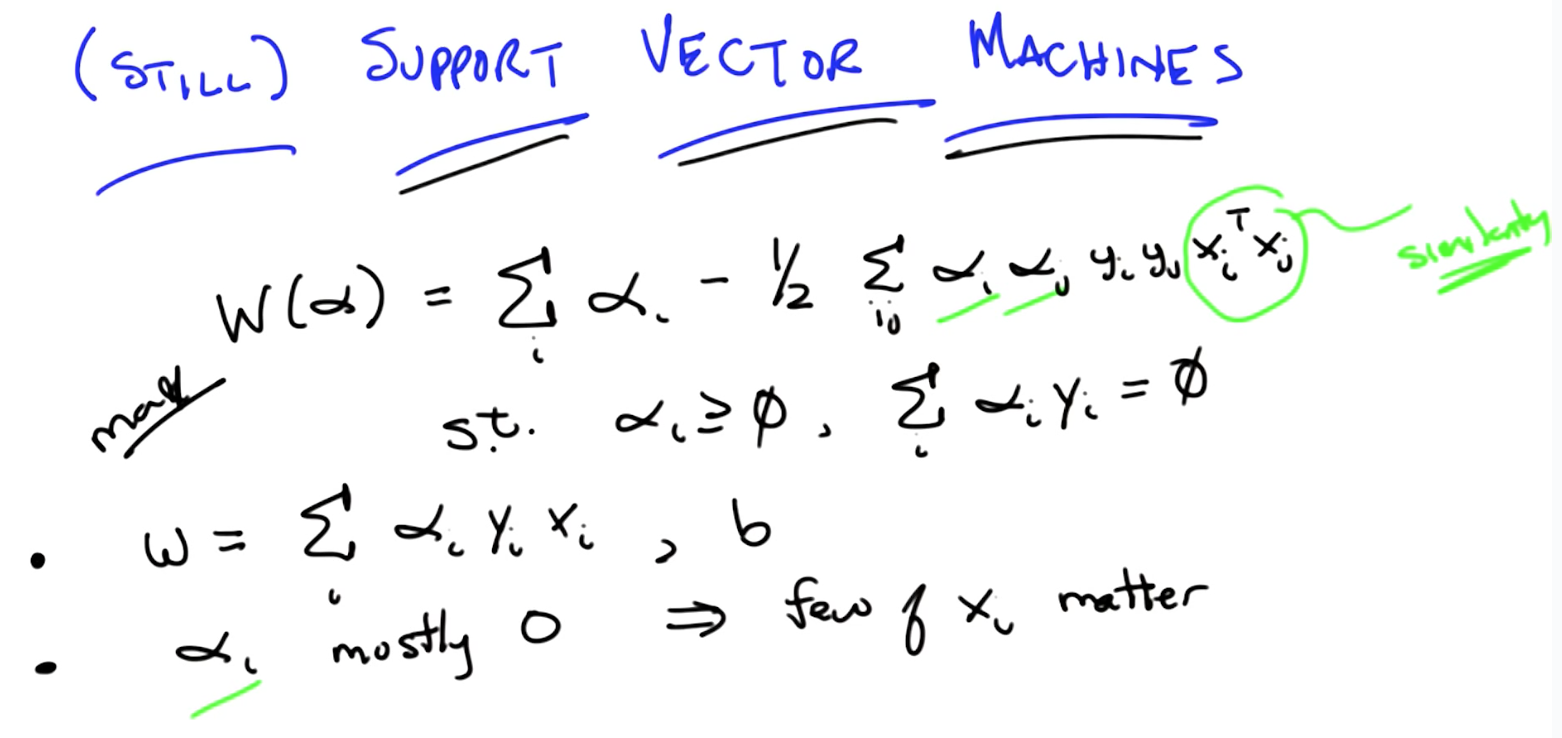 (STILL) SUPPORT VECTOR MACHINES
W(α) = Σ_i α_i - 1/2 Σ_ij α_i α_j y_i y_j x_i^T x_j similarity
max s.t. α_i ≥ 0, Σ_i α_i y_i = 0
• w = Σ_i α_i y_i x_i , b
• α_i mostly 0 ⇒ few of x_i matter